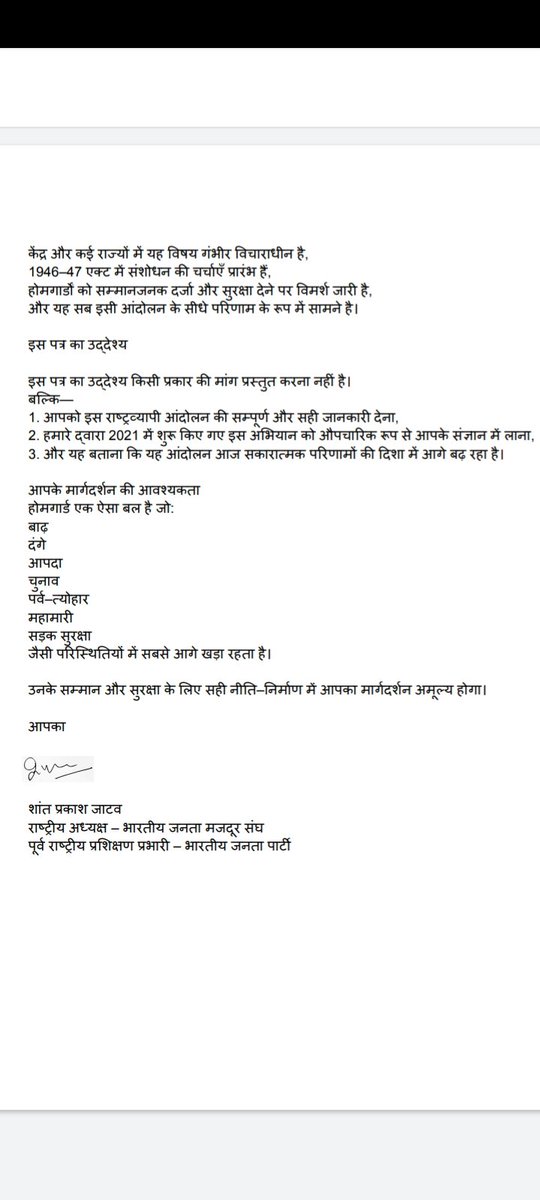 केंद्र और कई राज्यों में यह विषय गंभीर विचाराधीन है,
1946–47 एक्ट में संशोधन की चर्चाएँ प्रारंभ हैं,
होमगार्डों को सम्मानजनक दर्जा और सुरक्षा देने पर विमर्श जारी है,
और यह सब इसी आंदोलन के सीधे परिणाम के रूप में सामने है।
इस पत्र का उद्देश्य
इस पत्र का उद्देश्य किसी प्रकार की मांग प्रस्तुत करना नहीं है।
बल्कि—
1. आपको इस राष्ट्रव्यापी आंदोलन की सम्पूर्ण और सही जानकारी देना,
2. हमारे द्वारा 2021 में शुरू किए गए इस अभियान को औपचारिक रूप से आपके संज्ञान में लाना,
3. और यह बताना कि यह आंदोलन आज सकारात्मक परिणामों की दिशा में आगे बढ़ रहा है।
आपके मार्गदर्शन की आवश्यकता
होमगार्ड एक ऐसा बल है जो:
बाढ़
दंगे
आपदा
चुनाव
पर्व–त्योहार
महामारी
सड़क सुरक्षा
जैसी परिस्थितियों में सबसे आगे खड़ा रहता है।
उनके सम्मान और सुरक्षा के लिए सही नीति–निर्माण में आपका मार्गदर्शन अमूल्य होगा।
आपका
शांत प्रकाश जाटव
राष्ट्रीय अध्यक्ष – भारतीय जनता मजदूर संघ
पूर्व राष्ट्रीय प्रशिक्षण प्रभारी – भारतीय जनता पार्टी